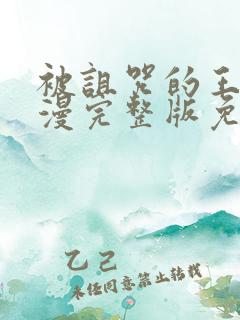 被诅咒的王
漫完整版免
乙己
未经同意禁止转载